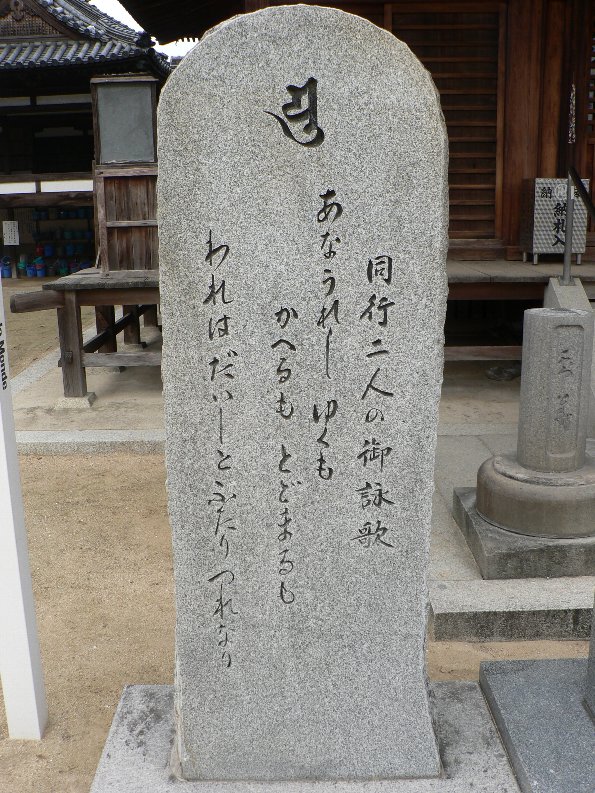 同行二人の御詠歌
あなうれし ゆくも
かへるも とどまるも
われはだいしと ふたり つれなり
納
納札入